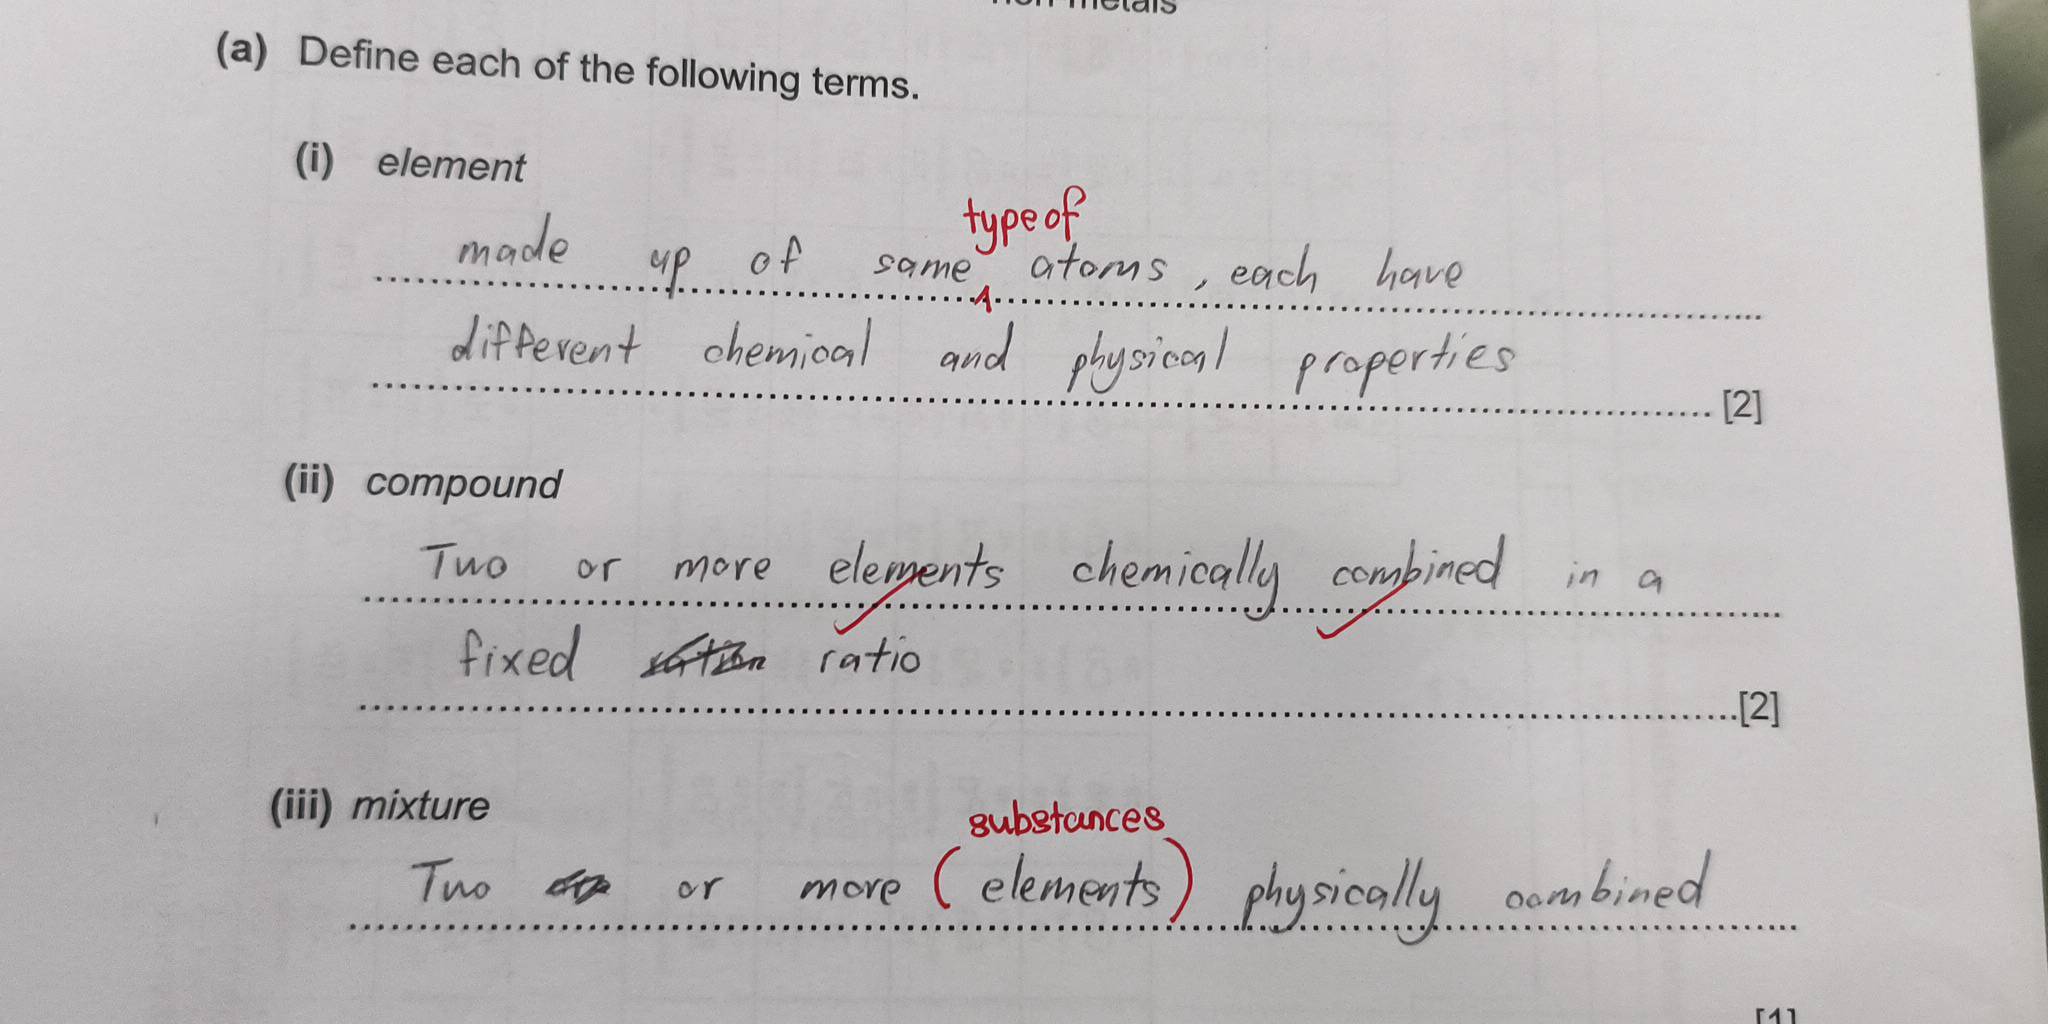 (a) Define each of the following terms.
(i) element
type of
made up of same atoms, each have
different chemical and physical properties
[2]
(ii) compound
Two or more elements chemically combined in a
fixed ratio
[2]
(iii) mixture
substances
Two or more (elements) physically combined
[1]